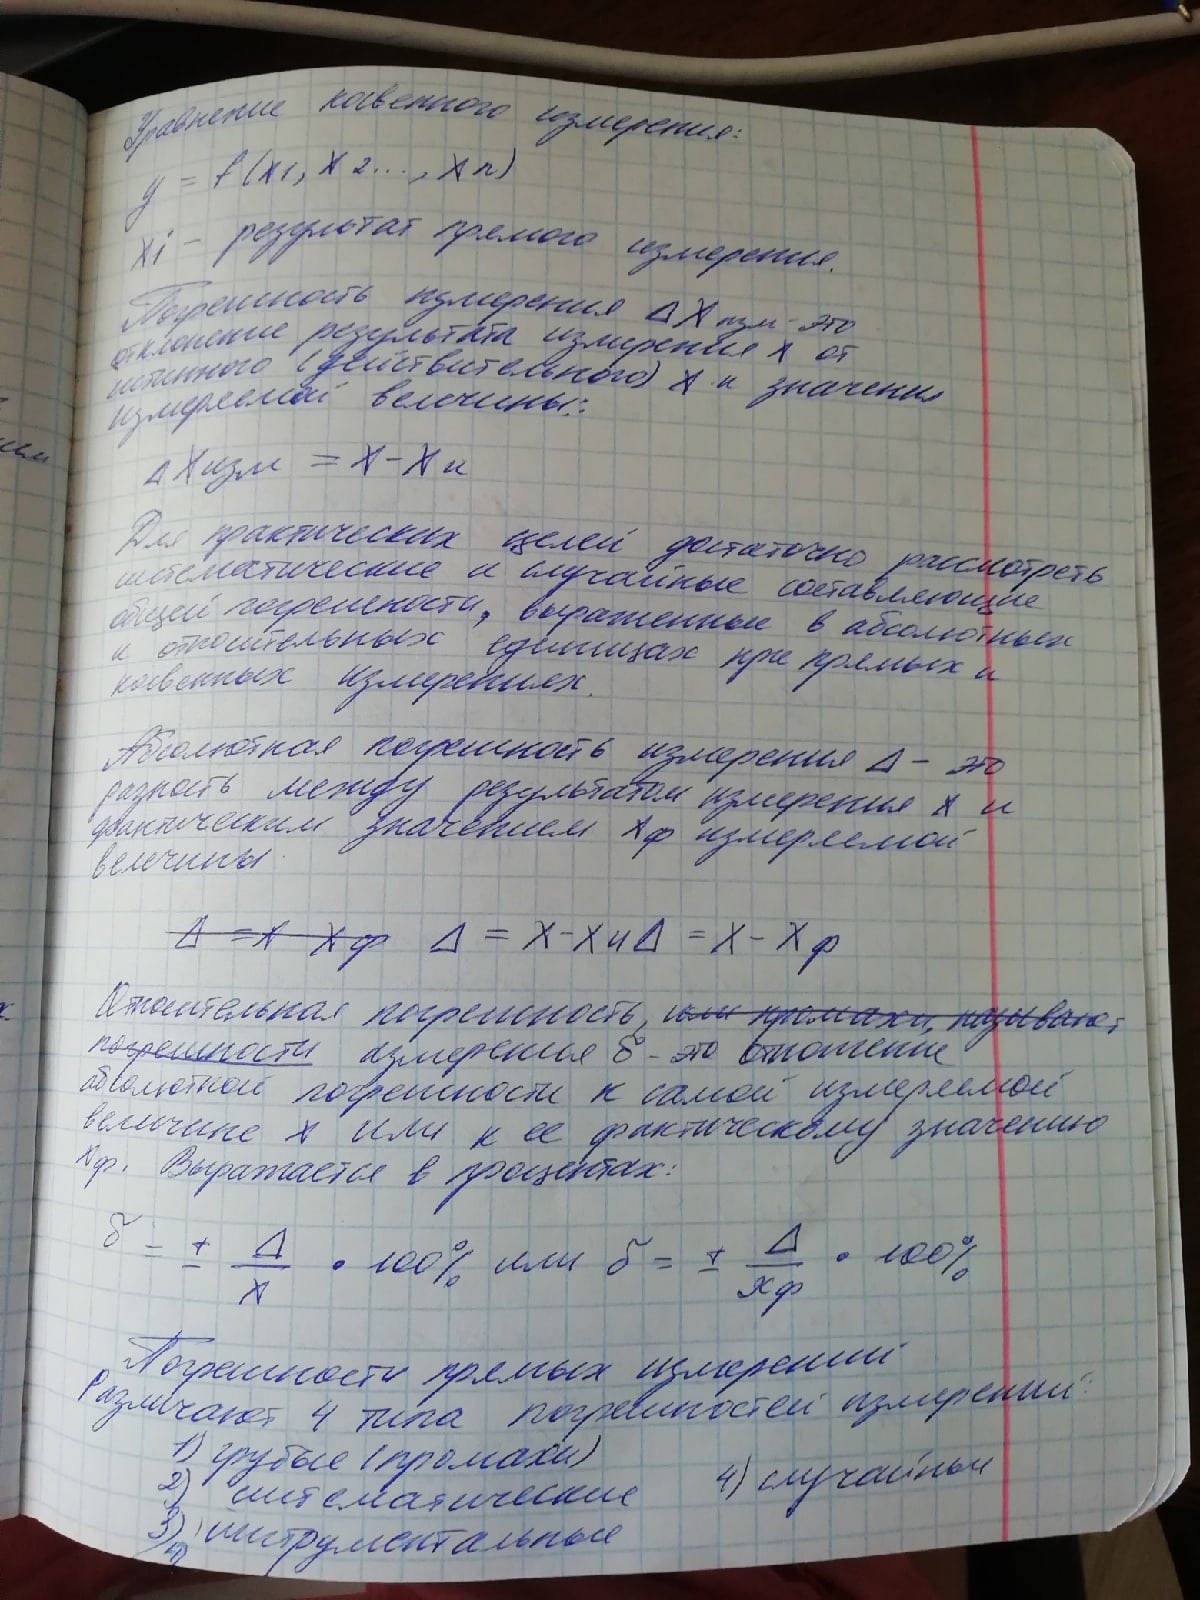 Уравнение косвенного измерения:
y = f(x1, x2..., xn)
xi - результат прямого измерения.
Погрешность измерения ΔXизм - это
отклонение результата измерения x от
истинного (действительного) xи значения
измеряемой величины:
ΔXизм = X - Xи
Для практических целей достаточно рассмотреть
систематические и случайные составляющие
общей погрешности, выраженные в абсолютных
и относительных единицах при прямых и
косвенных измерениях.
Абсолютная погрешность измерения Δ - это
разность между результатом измерения x и
фактическим значением xф измеряемой
величины.
Δ = x xф Δ = X - Xи Δ = X - Xф
Относительная погрешность, или промахи, называют
погрешности измерения δ - это отношение
абсолютной погрешности к самой измеряемой
величине x или к ее фактическому значению
xф. Выражается в процентах:
δ = ± Δ/x · 100% или δ = ± Δ/xф · 100%
Погрешности прямых измерений
Различают 4 типа погрешностей измерений:
1) грубые (промахи)
2) систематические
3) инструментальные
4) случайные